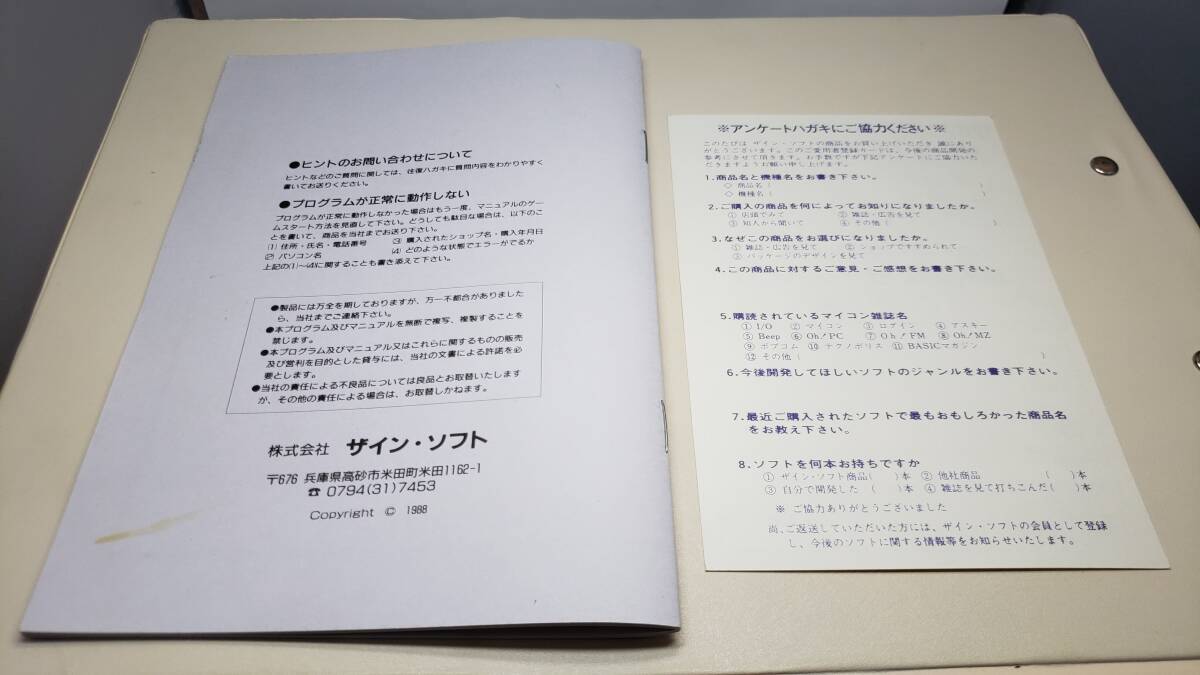 ●ヒントのお問い合わせについて
ヒントなどのご質問に関しては、往復ハガキに質問内容をわかりやすく
書いてお送りください。
●プログラムが正常に動作しない
プログラムが正常に動作しなかった場合はもう一度、マニュアルのゲー
ムスタート方法を見直して下さい。どうしても駄目な場合は、以下のこ
とを書いて、商品を当社までお送り下さい。
(1) 住所・氏名・電話番号 (3) 購入されたショップ名・購入年月日
(2) パソコン名 (4) どのような状態でエラーがでるか
上記の(1)～(4)に関することも書き添えて下さい。
●製品には万全を期しておりますが、万一不都合がありました
ら、当社までご連絡下さい。
●本プログラム及びマニュアルを無断で複写、複製することを
禁じます。
●本プログラム及びマニュアル又はこれらに関するものの販売
及び営利を目的とした貸与には、当社の文書による許諾を必
要とします。
●当社の責任による不良品については良品とお取替いたします
が、その他の責任による場合は、お取替しかねます。
株式会社 ザイン・ソフト
〒676 兵庫県高砂市米田町米田1162-1
☎ 0794(31)7453
Copyright © 1988
※アンケートハガキにご協力ください※
このたびは ザイン・ソフトの商品をお買い上げいただき 誠にあり
がとうございます。このご愛用者登録カードは、今後の商品開発の
参考にさせて頂きます。お手数ですが下記アンケートにご協力いた
だきますようお願い申し上げます。
1.商品名と機種名をお書き下さい。
◇ 商品名 ( )
◇ 機種名 ( )
2.ご購入の商品を何によってお知りになりましたか。
① 店頭でみて ② 雑誌・広告を見て
③ 知人から聞いて ④ その他 ( )
3.なぜこの商品をお選びになりましたか。
① 雑誌・広告を見て ② ショップですすめられて
③ パッケージのデザインを見て
4.この商品に対するご意見・ご感想をお書き下さい。
5.購読されているマイコン雑誌名
① I/O ② マイコン ③ ログイン ④ アスキー
⑤ Beep ⑥ Oh!PC ⑦ Oh!FM ⑧ Oh!MZ
⑨ ポプコム ⑩ テクノポリス ⑪ BASICマガジン
⑫ その他 ( )
6.今後開発してほしいソフトのジャンルをお書き下さい。
7.最近ご購入されたソフトで最もおもしろかった商品名
をお教え下さい。
8.ソフトを何本お持ちですか
① ザイン・ソフト商品( )本 ② 他社商品 ( )本
③ 自分で開発した ( )本 ④ 雑誌を見て打ちこんだ( )本
※ ご協力ありがとうございました
尚、ご返送していただいた方には、ザイン・ソフトの会員として登録
し、今後のソフトに関する情報等をお知らせいたします。